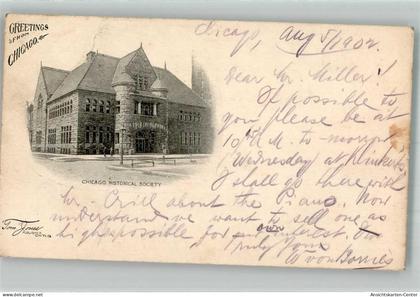 GREETINGS
FROM
CHICAGO.
CHICAGO HISTORICAL SOCIETY
Chicago, Aug 5/1902
Dear Mr. Miller!
If possible to
you please be at
10 A.M. to morrow
(Wednesday) at
I shall go there with
Mr. Crill about the Piano. Now
understand we want to sell one as
high as possible for own interest.
truly Yours
von
www.ansichtskarten-center.de
Ansichtskarten-Center.de